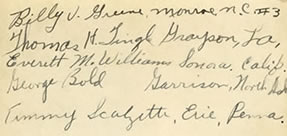 Billy V. Greene, Monroe N.C. #3
Thomas H. Lingl Grayson, La,
Everett M. Williams Sonora, Calif.
George Bold Garrison, North Dak
Timmy Scalzitti, Erie, Penna.